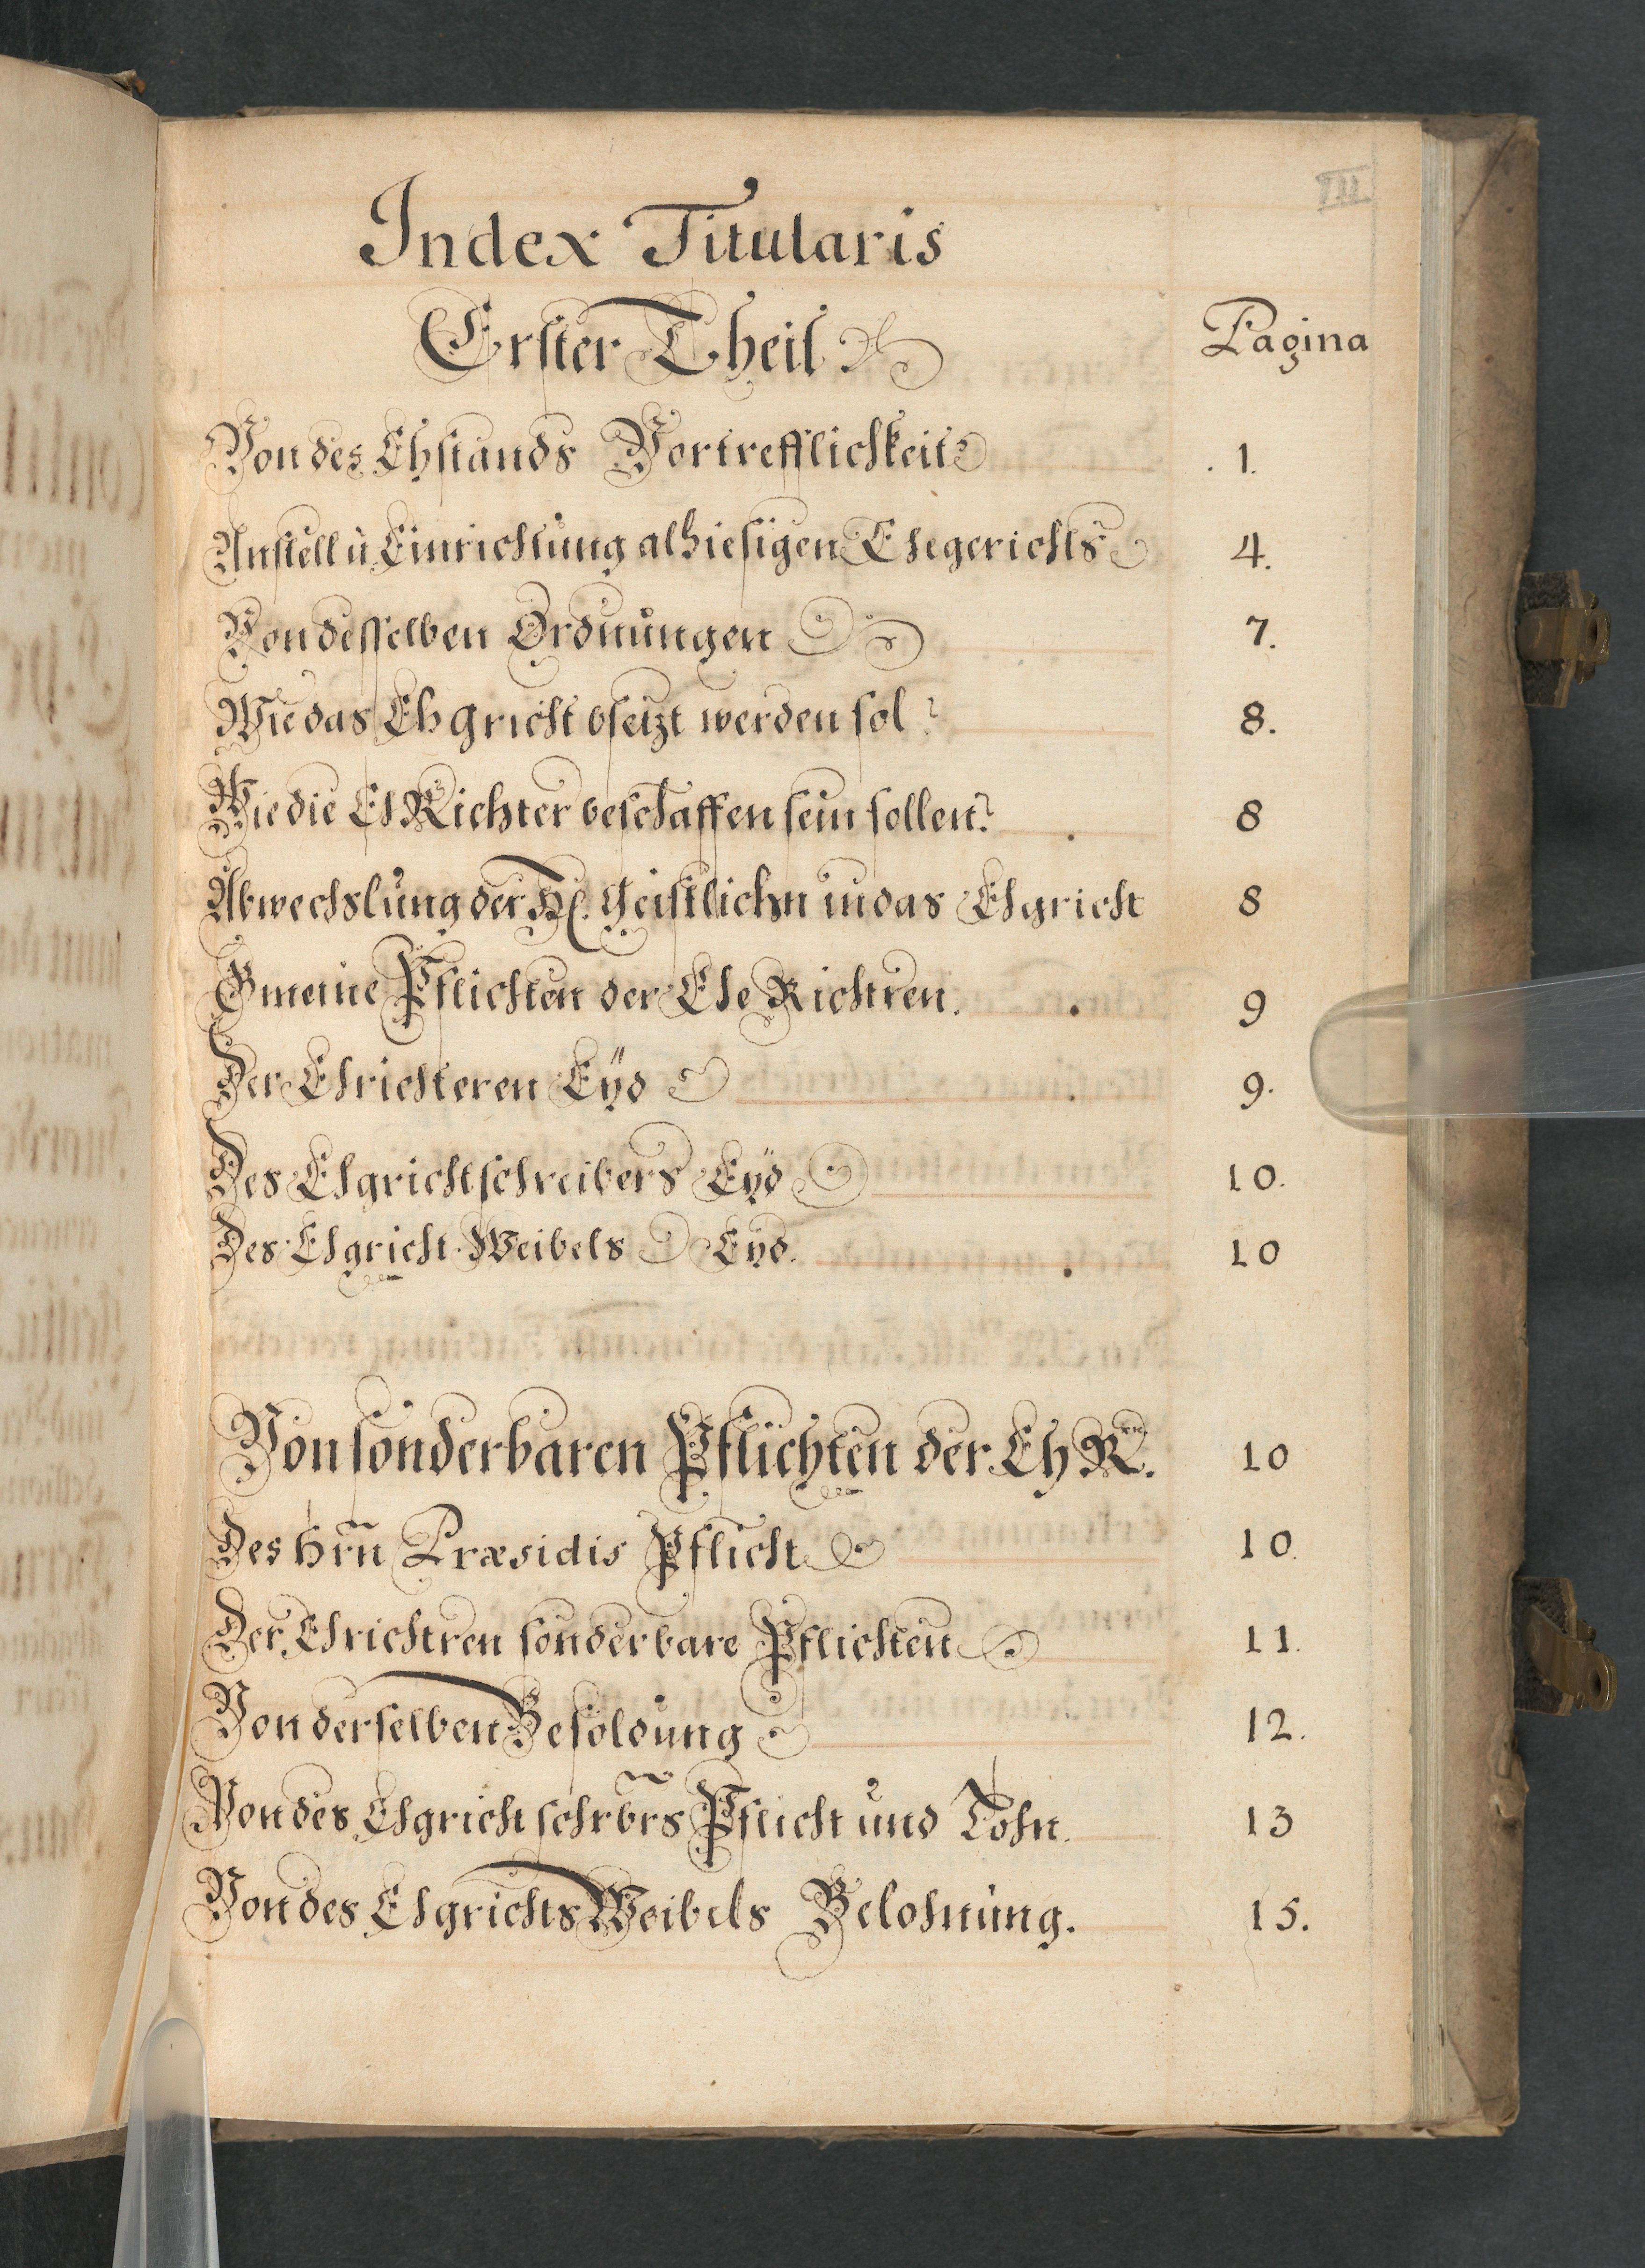 III
Index Titularis
Erster Theil Pagina
Von des Ehstands Vortrefflichkeit 1.
Anstell u Einrichtung alhiesigen Ehegerichts 4.
Von desselben Ordnungen 7.
Wie das Ehgricht bsetzt werden sol? 8.
Wie die Eh Richter beschaffen sein sollen? 8
Abwechslung der Hh. Geistlichn in das Ehgricht 8
Gmeine Pflichten der Ehe Richtren. 9
Der Ehrichteren Eÿd 9.
Des Ehgrichtschreibers Eÿd 10.
Des Ehgricht Weibels Eÿd. 10
Von sonderbaren Pflichten der Eh R. 10
Des hrn Præsidis Pflicht 10.
Der Ehrichtren sonderbare Pflichten 11.
Von derselben Besoldung 12.
Von des Ehgricht schrbrs Pflicht und Lohn. 13
Von des Ehgrichts Weibels Belohnung. 15.